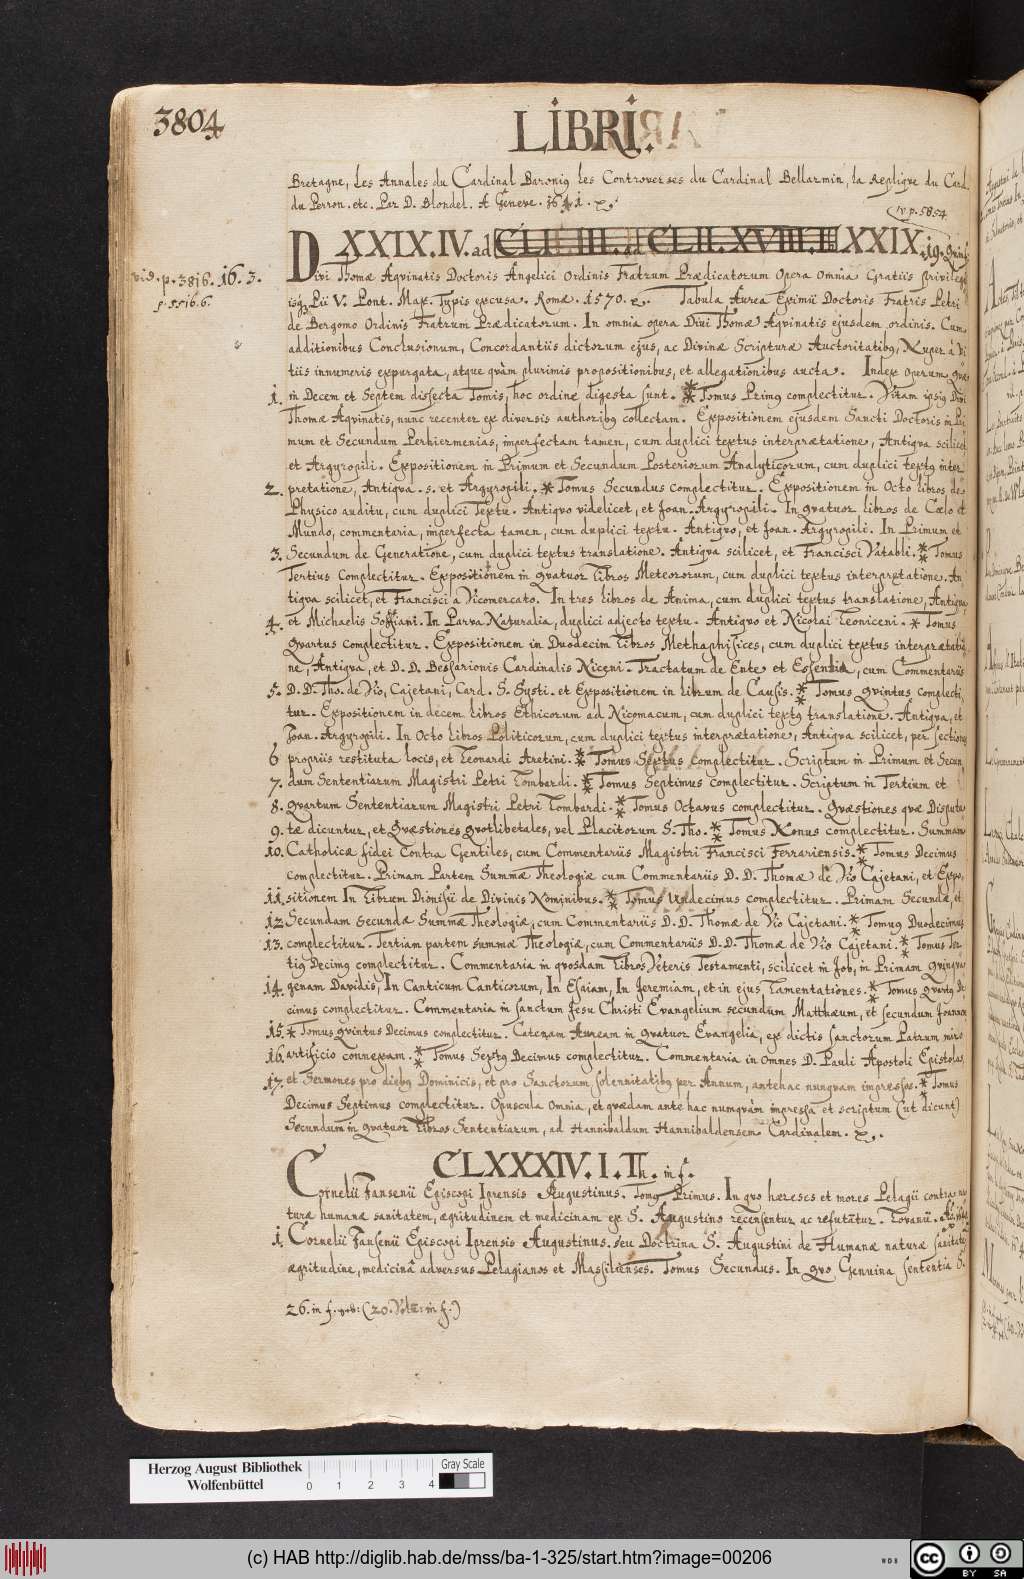 3804
LIBRI.
Bretagne, les Annales du Cardinal Baroniq les Controverses du Cardinal Bellarmin, la Repliqve du Card.
du Perron. etc. Par D. Blondel. A Geneve. 1641.
iv p. 5854
XXIX. IV. ad CLII. IIII. ad CLII. XVIII. XXIX. 19.
vid. p. 3816. 16. 3.
Divi Thomæ Aqvinatis Doctoris Angelici Ordinis Fratrum Prædicatorum Opera Omnia Gratiis privileg
f. 5516. 6.
isq3 Pii V. Pont. Max. Typis excusa. Romæ. 1570. Tabula Aurea Eximii Doctoris Fratris Petri
de Bergomo Ordinis Fratrum Prædicatorum. In omnia opera Divi Thomæ Aqvinatis ejusdem ordinis. Cum
additionibus Conclusionum, Concordantiis dictorum ejus, ac Divinæ Scripturæ Auctoritatibq, Nuper à Vi
tiis innumeris expurgata, atque qvàm plurimis propositionibus, et allegationibus aucta. Index operum qvæ
1. in Decem et Septem dissecta Tomis, hoc ordine digesta sunt. * Tomus Primq complectitur. Vitam ipsiq Divi
Thomæ Aqvinatis, nunc recenter ex diversis authoribq collectam. Expositionem ejusdem Sancti Doctoris in Pri
mum et Secundum Perhiermenias, imperfectam tamen, cum duplici textus interprætatione, Antiqva scilicet
et Argyropili. Expositionem in Primum et Secundum Posteriorum Analyticorum, cum duplici textq inter
2. pretatione, Antiqva. s. et Argyropili. * Tomus Secundus complectitur. Expositionem in Octo libros de
Physico auditu, cum duplici Textu. Antiqvo videlicet, et Joan. Argyropili. In qvatuor libros de Cœlo et
Mundo, commentaria, imperfecta tamen, cum duplici textu. Antiqvo, et Joan. Argyropili. In Primum et
3. Secundum de Generatione, cum duplici textus translatione. Antiqva scilicet, et Francisci Vatabli. * Tomus
Tertius Complectitur. Expositionem in qvatuor Libros Meteororum, cum duplici textus interprætatione. An
tiqva scilicet, et Francisci a Vicomercato. In tres libros de Anima, cum duplici textus translatione, Antiqva
4. et Michaelis Soffiani. In Parva Naturalia, duplici adjecto textu. Antiqvo et Nicolai Leoniceni. * Tomus
Qvartus complectitur. Expositionem in Duodecim Libros Methaphisices, cum duplici textus interprætatio
ne, Antiqva, et D. D. Bessarionis Cardinalis Niceni. Tractatum de Ente et Essentia, cum Commentariis
5. D. D. Tho. de Vio, Cajetani, Card. S. Systi. et Expositionem in librum de Causis. * Tomus qvintus complecti
tur. Expositionem in decem libros Ethicorum ad Nicomacum, cum duplici textq translatione. Antiqva, et
Joan. Argyropili. In Octo Libros Politicorum, cum duplici textus interprætatione, Antiqva scilicet, per sectiones
6 propriis restituta locis, et Leonardi Aretini. * Tomus Sextus Complectitur. Scriptum in Primum et Secun
7. dum Sententiarum Magistri Petri Lombardi. * Tomus Septimus complectitur. Scriptum in Tertium et
8. qvartum Sententiarum Magistri Petri Lombardi. * Tomus Octavus complectitur. Qvæstiones qvæ Disputa
9. tæ dicuntur, et Qvæstiones qvotlibetales, vel Placitorum S. Tho. * Tomus Nonus complectitur. Summam
10. Catholicæ fidei contra Gentiles, cum Commentariis Magistri Francisci Ferrariensis. * Tomus Decimus
complectitur. Primam Partem Summæ Theologiæ cum Commentariis D. D. Thomæ de Vio Cajetani, et Expo
11. sitionem In Librum Dionisii de Divinis Nominibus. * Tomus Undecimus complectitur. Primam Secundæ, et
12. Secundam secundæ Summæ Theologiæ, cum Commentariis D. D. Thomæ de Vio Cajetani. * Tomuq Duodecimus
13. complectitur. Tertiam partem summæ Theologiæ, cum Commentariis D. D. Thomæ de Vio Cajetani. * Tomus Ter
tiq Decimq complectitur. Commentaria in qvosdam Libros Veteris Testamenti, scilicet in Job, in Primam qvinqva
14. genam Davidis, In Canticum Canticorum, In Esaiam, In Jeremiam, et in ejus Lamentationes. * Tomus qvartq De
cimus complectitur. Commentaria in sanctum Jesu Christi Evangelium secundum Matthæum, et secundum Joannem
15. * Tomus qvintus Decimus complectitur. Catenam Auream in qvatuor Evangelia, ex dictis sanctorum Patrum miro
16. artificio connexam. * Tomus Sextq Decimus complectitur. Commentaria in omnes D. Pauli Apostoli Epistolas,
17. et Sermones pro diebq Dominicis, et pro Sanctorum solennitatibq per Annum, antehac nunqvam impressos. * Tomus
Decimus Septimus complectitur. Opuscula Omnia, et qvædam ante hac numqvàm impressa et scriptum (ut dicunt)
Secundum in qvatuor Libros Sententiarum, ad Hannibaldum Hannibaldensem Cardinalem.
CLXXXIV. I. II. Th. in f.
Cornelii Jansenii Episcopi Iprensis Augustinus. Tomq Primus. In qvo hæreses et mores Pelagii contra na
turæ humanæ sanitatem, ægritudinem et medicinam ex S. Augustino recensentur ac refutātur. Lovanii.
1. Cornelii Jansenii Episcopi Iprensis Augustinus. seu Doctrina S. Augustini de Humanæ naturæ sanitate,
ægritudine, medicinâ adversus Pelagianos et Massilienses. Tomus Secundus. In qvo Genuina sententia S.
26. in f. (20. Vol: in f.)
Herzog August Bibliothek
Wolfenbüttel
0 1 2 3 4
Gray Scale
(c) HAB http://diglib.hab.de/mss/ba-1-325/start.htm?image=00206
WDB
cc BY SA